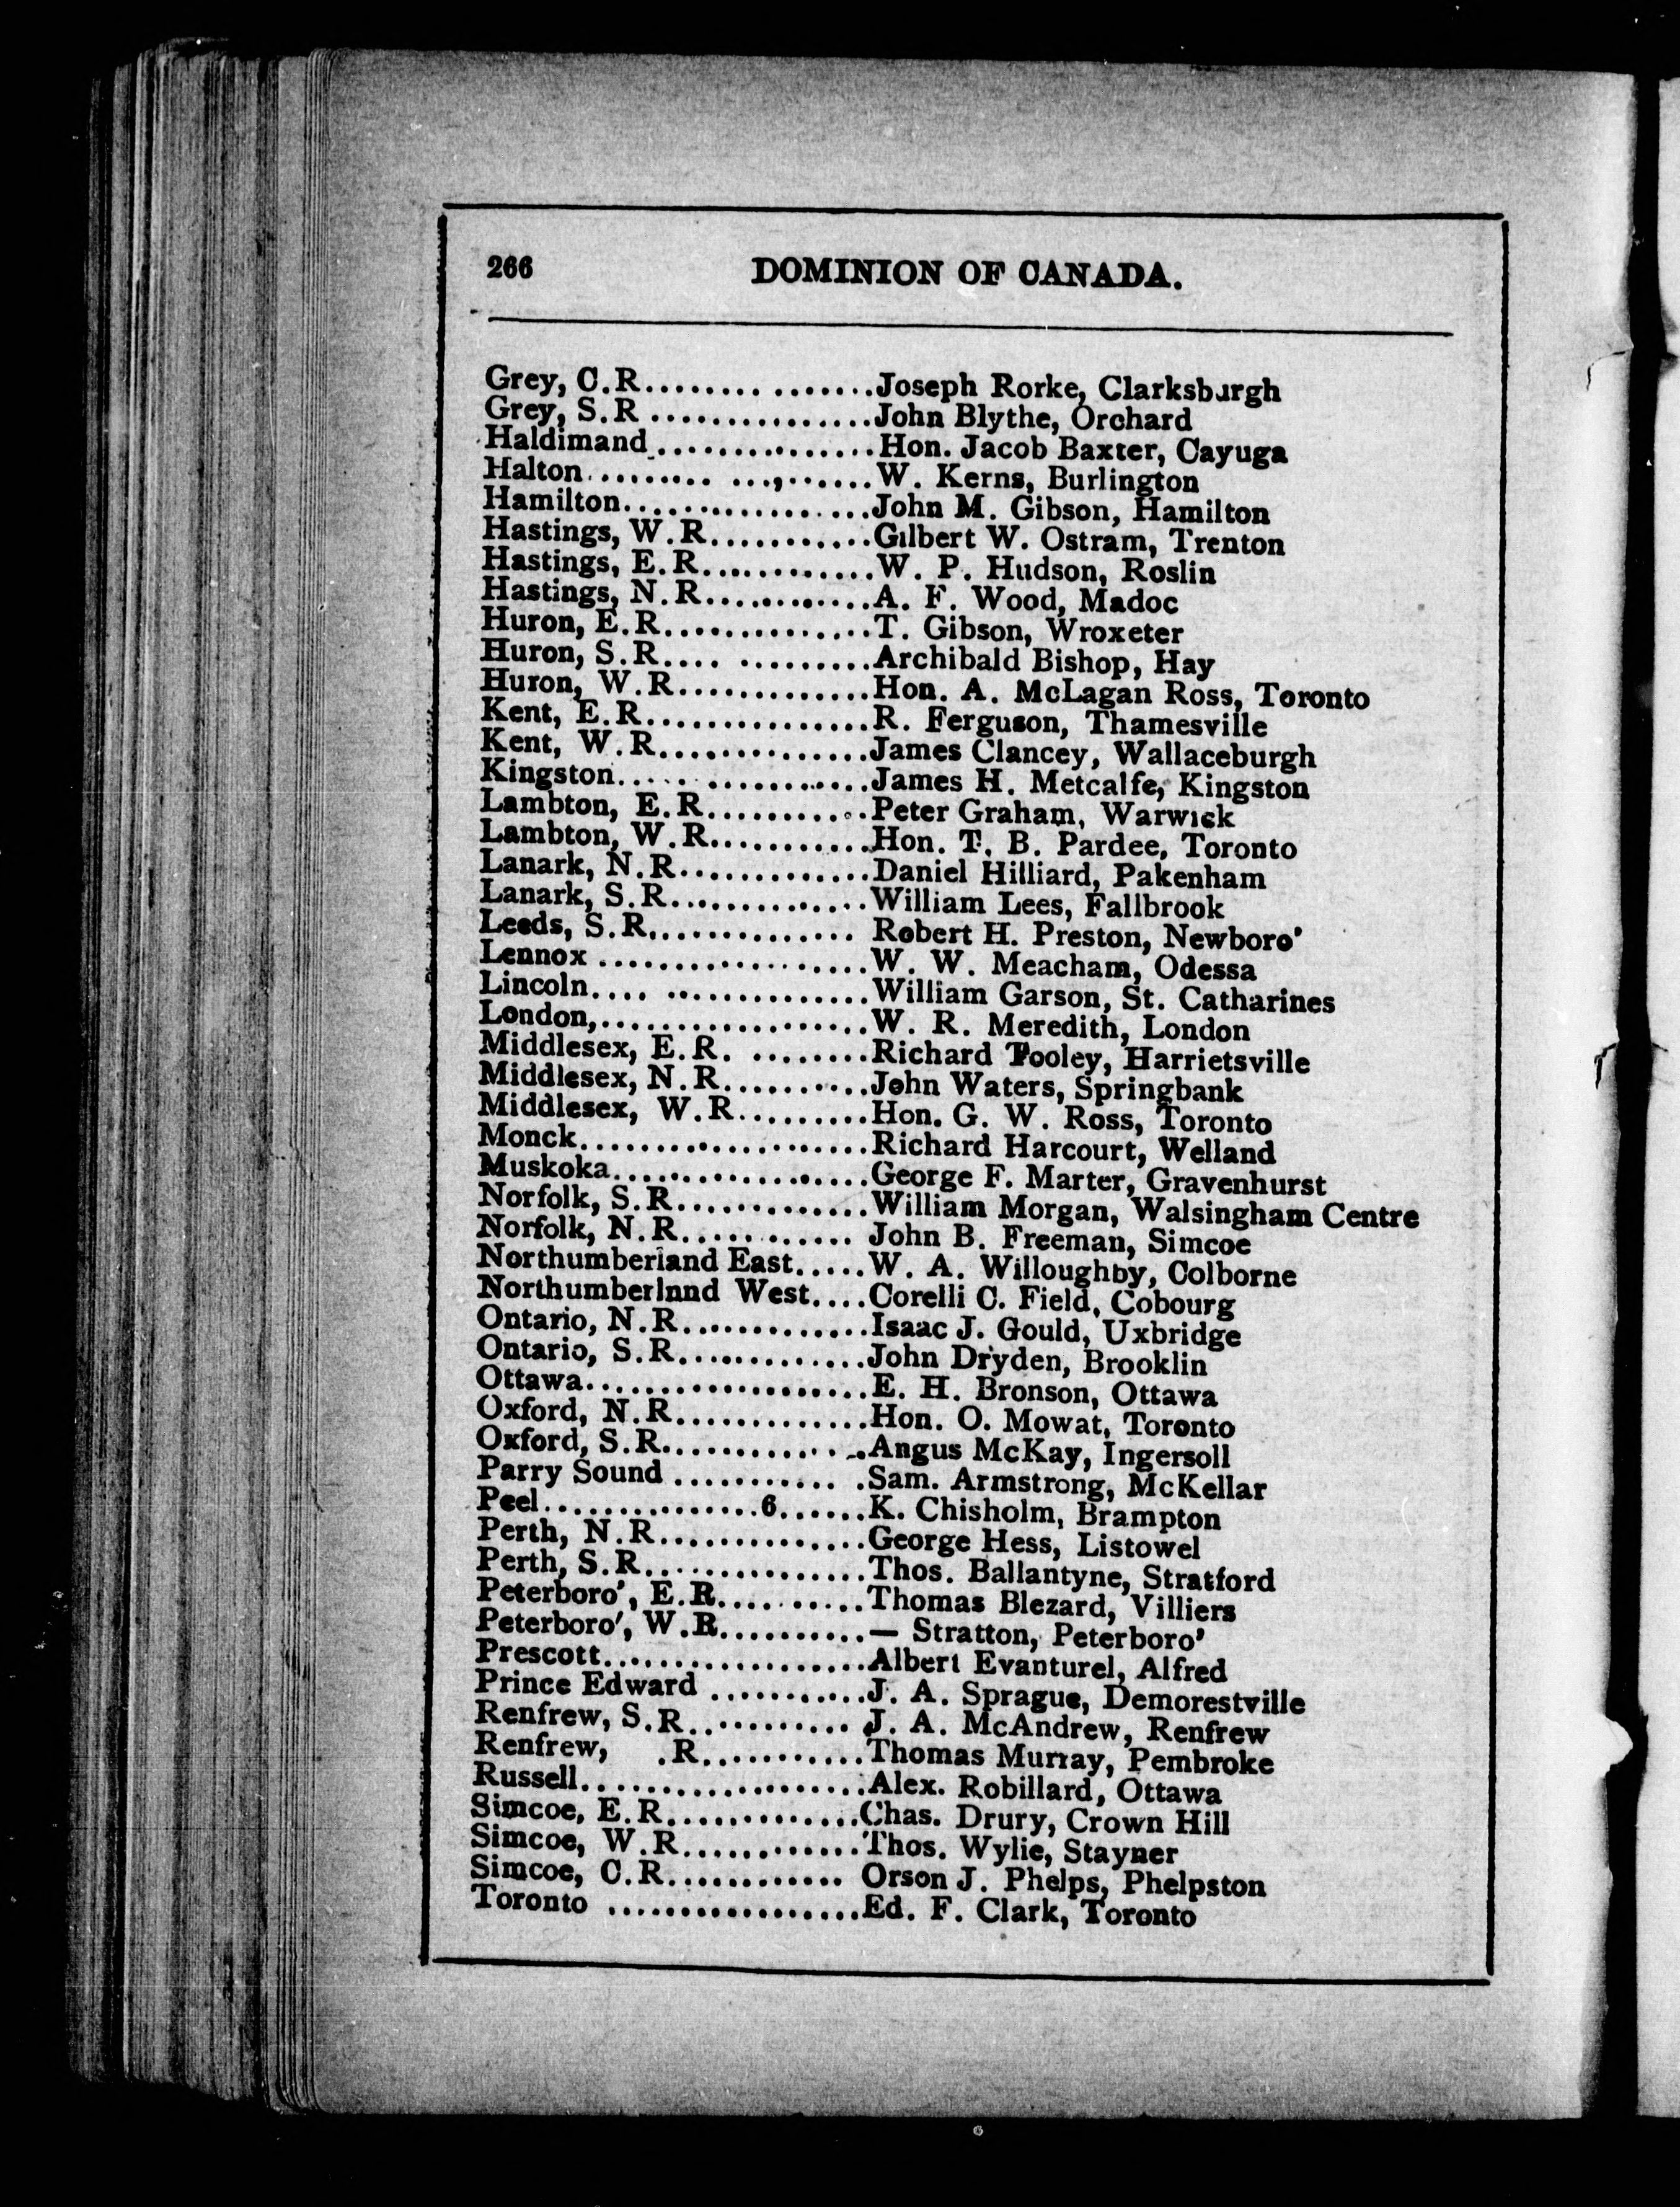 266 DOMINION OF CANADA.
Grey, C.R................Joseph Rorke, Clarksburgh
Grey, S.R ...............John Blythe, Orchard
Haldimand................Hon. Jacob Baxter, Cayuga
Halton......... ...,......W. Kerns, Burlington
Hamilton.................John M. Gibson, Hamilton
Hastings, W.R...........Gilbert W. Ostram, Trenton
Hastings, E.R............W. P. Hudson, Roslin
Hastings, N.R...........A. F. Wood, Madoc
Huron, E.R..............T. Gibson, Wroxeter
Huron, S.R.... .........Archibald Bishop, Hay
Huron, W.R.............Hon. A. McLagan Ross, Toronto
Kent, E.R...............R. Ferguson, Thamesville
Kent, W.R..............James Clancey, Wallaceburgh
Kingston..... ...........James H. Metcalfe, Kingston
Lambton, E.R...........Peter Graham, Warwick
Lambton, W.R...........Hon. T. B. Pardee, Toronto
Lanark, N.R.............Daniel Hilliard, Pakenham
Lanark, S.R.............William Lees, Fallbrook
Leeds, S.R.............. Robert H. Preston, Newboro'
Lennox ..................W. W. Meacham, Odessa
Lincoln.... ..............William Garson, St. Catharines
London,..................W. R. Meredith, London
Middlesex, E.R. ........Richard Tooley, Harrietsville
Middlesex, N.R..........John Waters, Springbank
Middlesex, W.R.........Hon. G. W. Ross, Toronto
Monck....................Richard Harcourt, Welland
Muskoka.................George F. Marter, Gravenhurst
Norfolk, S.R.............William Morgan, Walsingham Centre
Norfolk, N.R............ John B. Freeman, Simcoe
Northumberland East.....W. A. Willoughby, Colborne
Northumberlnnd West....Corelli C. Field, Cobourg
Ontario, N.R.............Isaac J. Gould, Uxbridge
Ontario, S.R.............John Dryden, Brooklin
Ottawa...................E. H. Bronson, Ottawa
Oxford, N.R.............Hon. O. Mowat, Toronto
Oxford, S.R..............Angus McKay, Ingersoll
Parry Sound ............ .Sam. Armstrong, McKellar
Peel...............6......K. Chisholm, Brampton
Perth, N.R..............George Hess, Listowel
Perth, S.R...............Thos. Ballantyne, Stratford
Peterboro', E.R..........Thomas Blezard, Villiers
Peterboro', W.R..........— Stratton, Peterboro'
Prescott..................Albert Evanturel, Alfred
Prince Edward ...........J. A. Sprague, Demorestville
Renfrew, S.R........... J. A. McAndrew, Renfrew
Renfrew, .R...........Thomas Murray, Pembroke
Russell...................Alex. Robillard, Ottawa
Simcoe, E.R.............Chas. Drury, Crown Hill
Simcoe, W.R............Thos. Wylie, Stayner
Simcoe, C.R............ Orson J. Phelps, Phelpston
Toronto .................Ed. F. Clark, Toronto